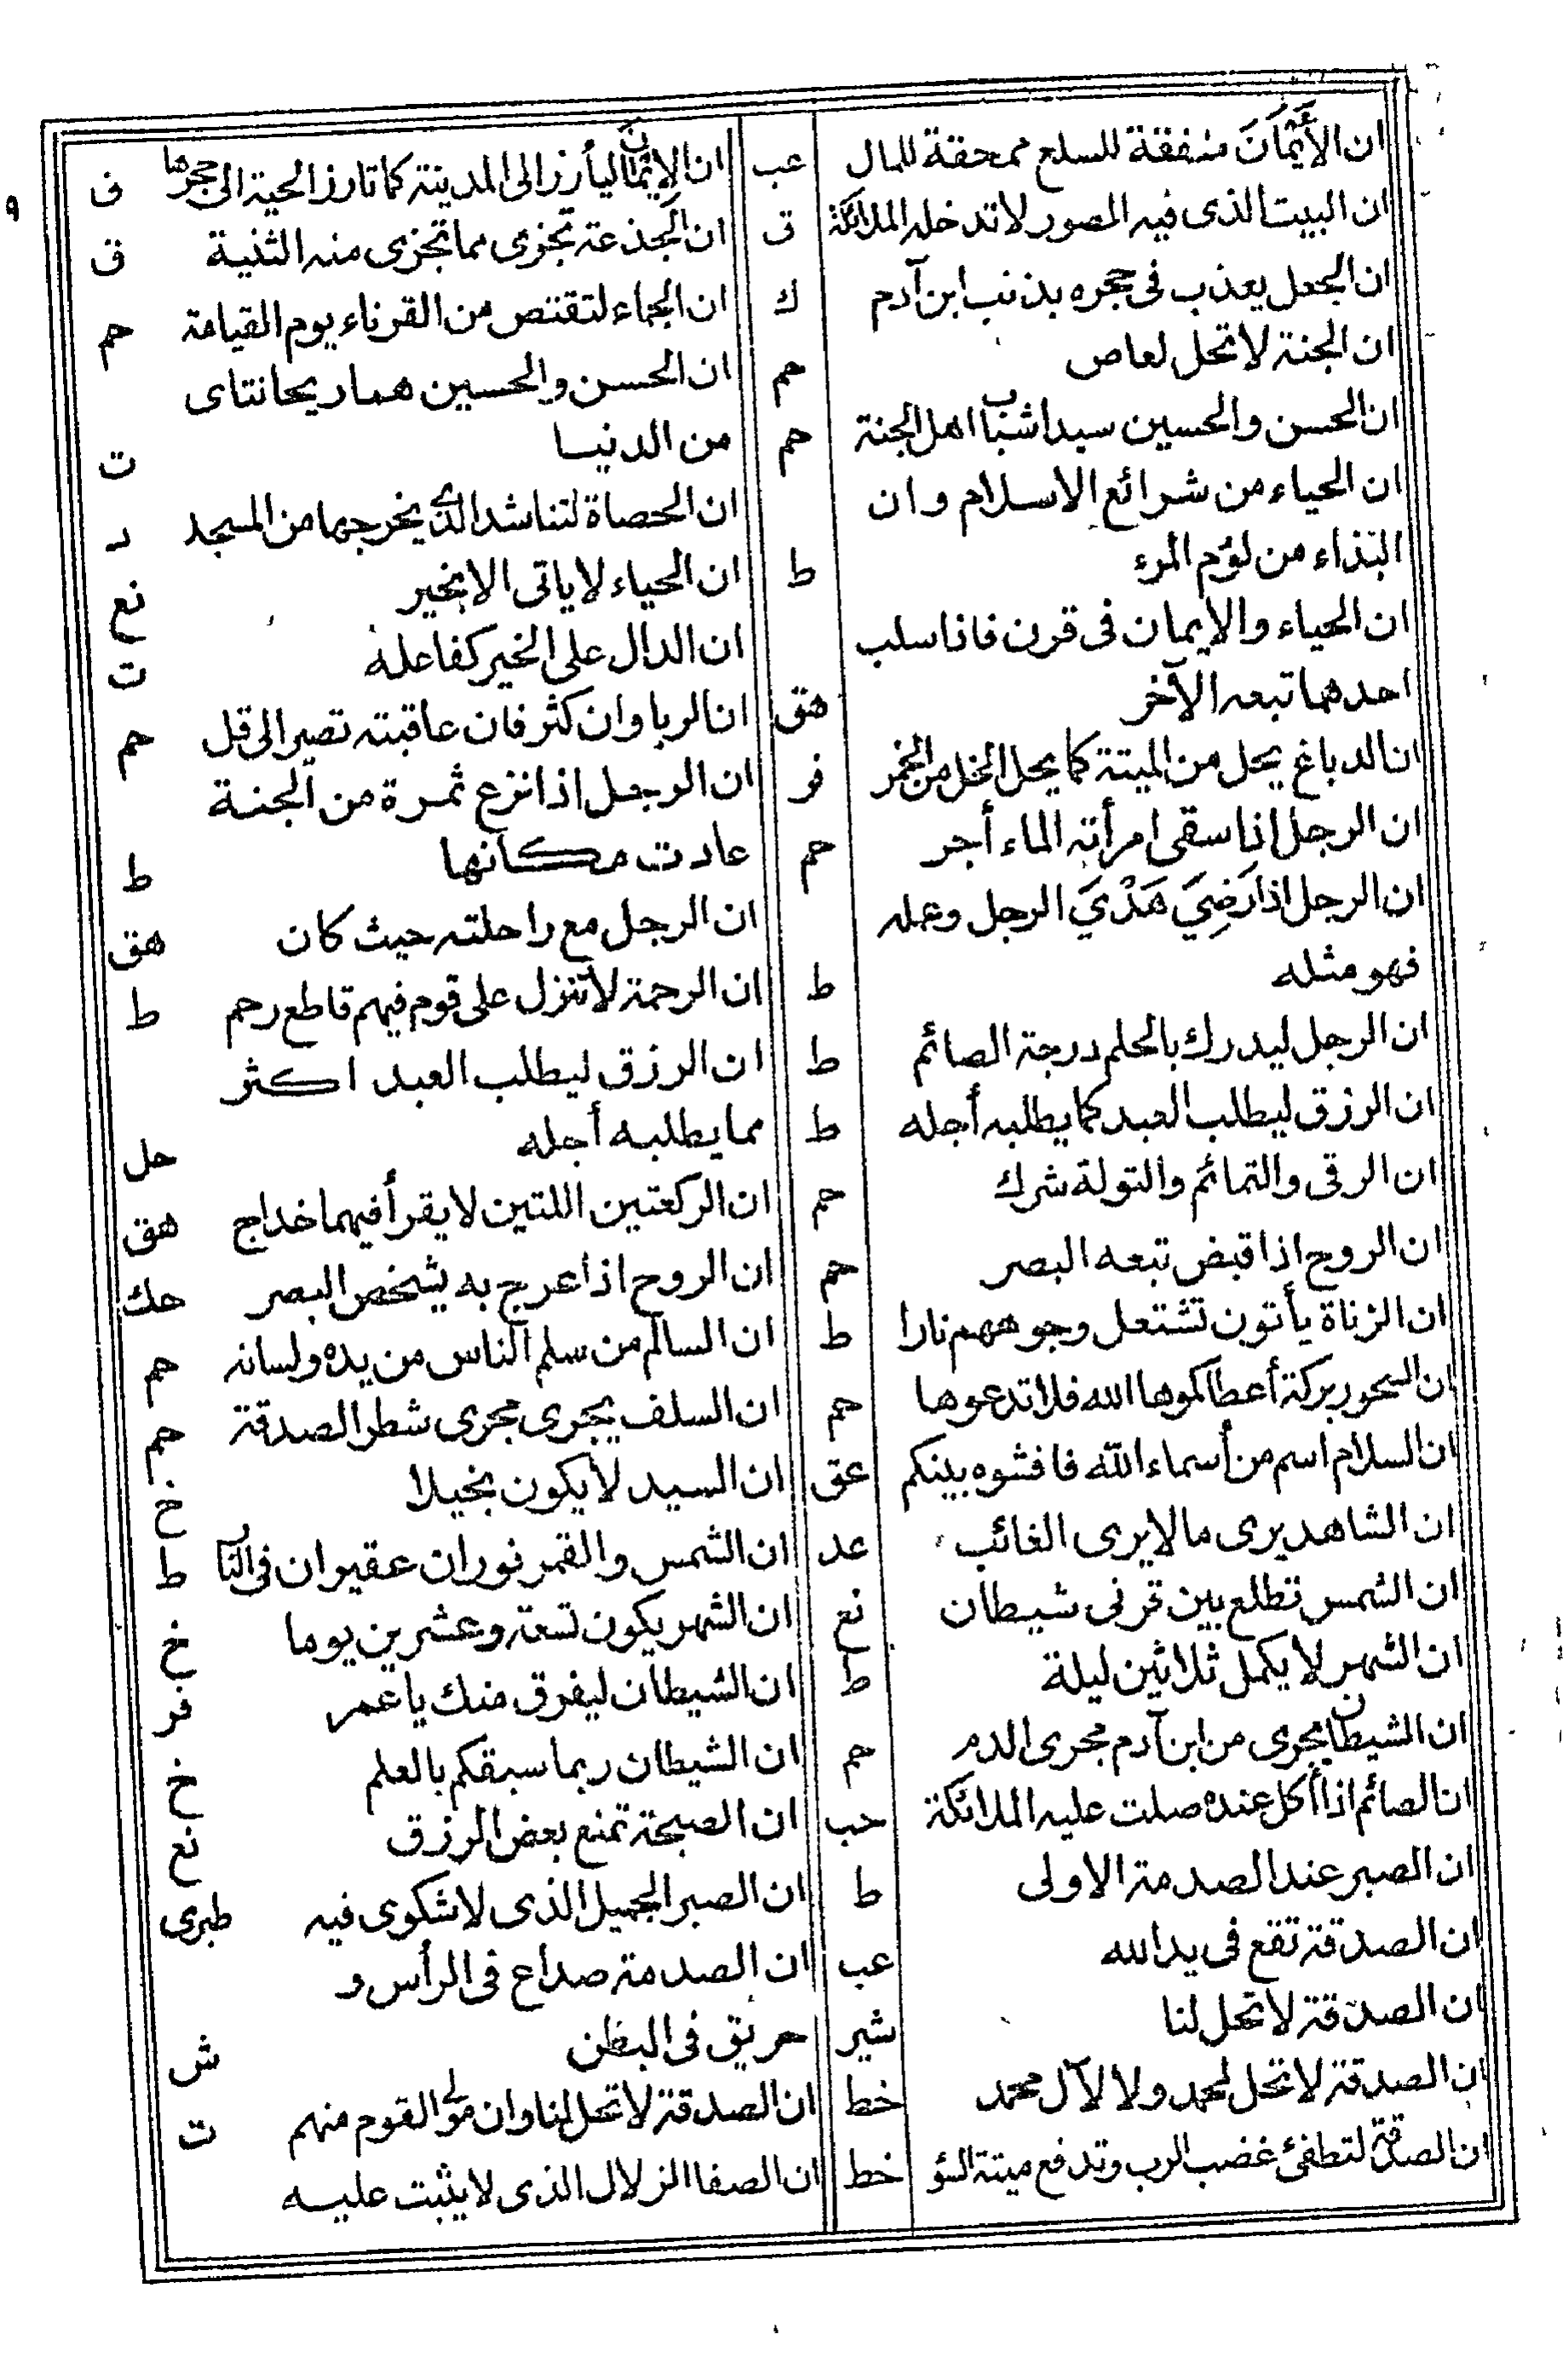 ٩
ان الأَيْمَانَ منفقة للسلع ممحقة للمال عب
ان البيت الذى فيه الصور لا تدخله الملائكة ق
ان الجعل يعذب فى جحره بذنب ابن آدم ك
ان الجنة لا تحل لعاص حم
ان الحسن والحسين سيدا شباب اهل الجنة حم
ان الحياء من شرائع الاسلام وان
البذاء من لؤم المرء ط
ان الحياء والايمان فى قرن فاذا سلب
احدهما تبعه الآخر هق
ان الدباغ يحل من الميتة كما يحل الخل من الخمر فر
ان الرجل اذا سقى امرأته الماء أجر حم
ان الرجل اذا رَضِيَ هَدْيَ الرجل وعمله
فهو مثله ط
ان الرجل ليدرك بالحلم درجة الصائم ط
ان الرزق ليطلب العبد كما يطلبه أجله ط
ان الرقى والتمائم والتولة شرك حم
ان الروح اذا قبض تبعه البصر حم
ان الزناة يأتون تشتعل وجوههم نارا ط
ان السحور بركة أعطاكموها الله فلا تدعوها حم
ان السلام اسم من أسماء الله فافشوه بينكم عق
ان الشاهد يرى مالا يرى الغائب عد
ان الشمس تطلع بين قرنى شيطان نع
ان الشهر لا يكمل ثلاثين ليلة ط
ان الشيطان يجرى من ابن آدم مجرى الدم حم
ان الصائم اذا أكل عنده صلت عليه الملائكة حب
ان الصبر عند الصدمة الاولى ط
ان الصدقة تقع فى يد الله عب
ان الصدقة لا تحل لنا شير
ان الصدقة لا تحل لمحمد ولا لآل محمد خط
ان الصدقة لتطفئ غضب الرب وتدفع ميتة السؤ خط
ان الإيمان ليأرز الى المدينة كما تارز الحية الى جحرها ق
ان الجذعة تجزى مما تجزى منه الثنية ق
ان الجماء لتقتص من القرناء يوم القيامة حم
ان الحسن والحسين هما ريحانتاى
من الدنيا ت
ان الحصاة لتناشد الذى يخرجها من المسجد د
ان الحياء لا ياتى الا بخير نع
ان الدال على الخير كفاعله ت
ان الربا وان كثر فان عاقبته تصير الى قل حم
ان الرجل اذا نزع ثمرة من الجنة
عادت مكانها ط
ان الرجل مع راحلته حيث كان هق
ان الرحمة لا تنزل على قوم فيهم قاطع رحم ط
ان الرزق ليطلب العبد اكثر
مما يطلبه أجله حل
ان الركعتين اللتين لا يقرأ فيهما خداج هق
ان الروح اذا عرج به يشخص البصر حك
ان السالم من سلم الناس من يده ولسانه حم
ان السلف يجرى مجرى شطر الصدقة حم
ان السيد لا يكون بخيلا خ
ان الشمس والقمر نوران عقيران فى النار ط
ان الشهر يكون تسعة وعشرين يوما خ
ان الشيطان ليفرق منك يا عمر فر
ان الشيطان ربما سبقكم بالعلم خ
ان الصبحة تمنع بعض الرزق نع
ان الصبر الجميل الذى لا شكوى فيه طبرى
ان الصدمة صداع فى الرأس و
حريق فى البطن ش
ان الصدقة لا تحل لنا وان مولى القوم منهم ت
ان الصفا الزلال الذى لا يثبت عليه